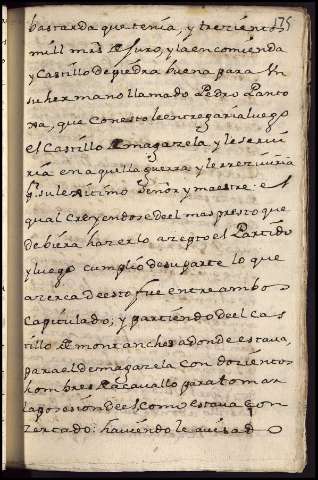 135
bastarda que tenia, y trezientos
mill mrs de juro, y la encomienda
y Castillo de piedra buena para Un
su hermano llamado Pedro Panto
xa, que con esto le entregaria luego
el Castillo de magazela y le servi
ria en aquella guerra y le rreziviria
por su lexitimo Señor y maestre: el
qual Creyendose del mas presto que
debiera hazerlo azepto el Partido
y luego cumplio de su parte lo que
azerca de esto fue entre ambos
Capitulado; y partiendo de el Cas
tillo de montanches adonde estava,
para el de magazela con dozientos
hombres de acavallo para tomar
la posesion de el, como estava con
zertado: haviendole avisado